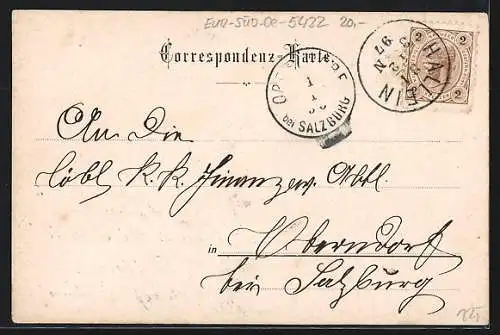 EUR-SÜD-Oe-5422 20,-
Correspondenz-Karte.
2 2
HALLEIN
97
N
bei SALZBURG
An die
löbl. k. k. Finanzw. Abtl.
in Oberndorf
bei Salzburg